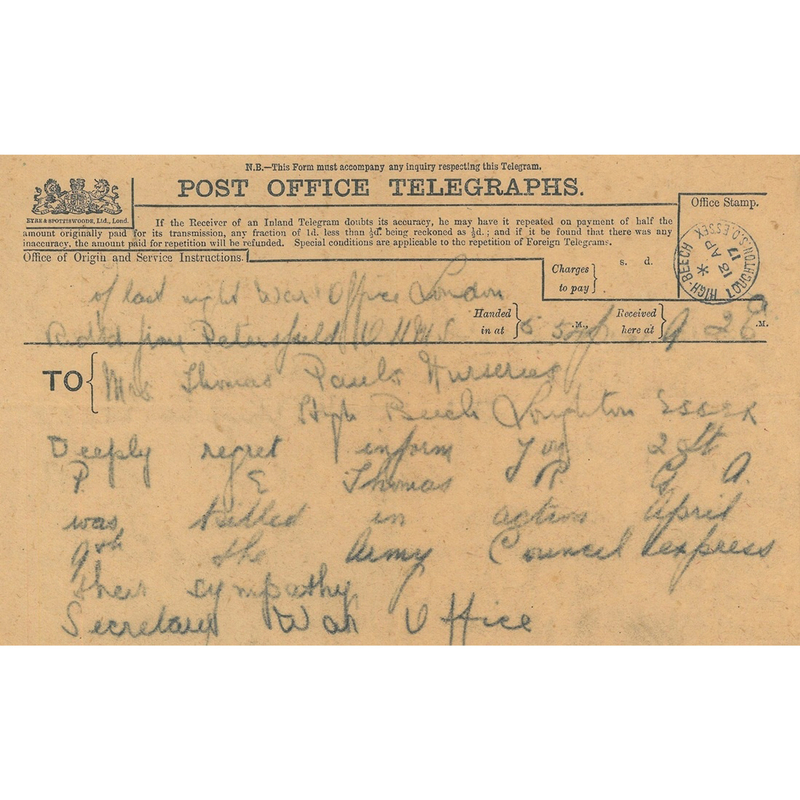 N.B.—This Form must accompany any inquiry respecting this Telegram.
POST OFFICE TELEGRAPHS.
EYRE & SPOTTISWOODE, Ltd., Lond.
Office Stamp.
If the Receiver of an Inland Telegram doubts its accuracy, he may have it repeated on payment of half the
amount originally paid for its transmission, any fraction of 1d. less than ½d. being reckoned as ½d.; and if it be found that there was any
inaccuracy, the amount paid for repetition will be refunded. Special conditions are applicable to the repetition of Foreign Telegrams.
HIGH-BEECH
LOUGHTON S.O. ESSEX
AP
17
Office of Origin and Service Instructions.
Charges to pay
s. d.
of last night War Office London
Handed in at
.M.,
Received here at
.M.
from Petersfield OHMS 5
TO Mrs Thomas Pauls Nurseries
High Beech Loughton Essex
Deeply regret inform you 2 Lt
P. E Thomas R. G. A.
was killed in action April
9th the Army Council express
their sympathy
Secretary War Office